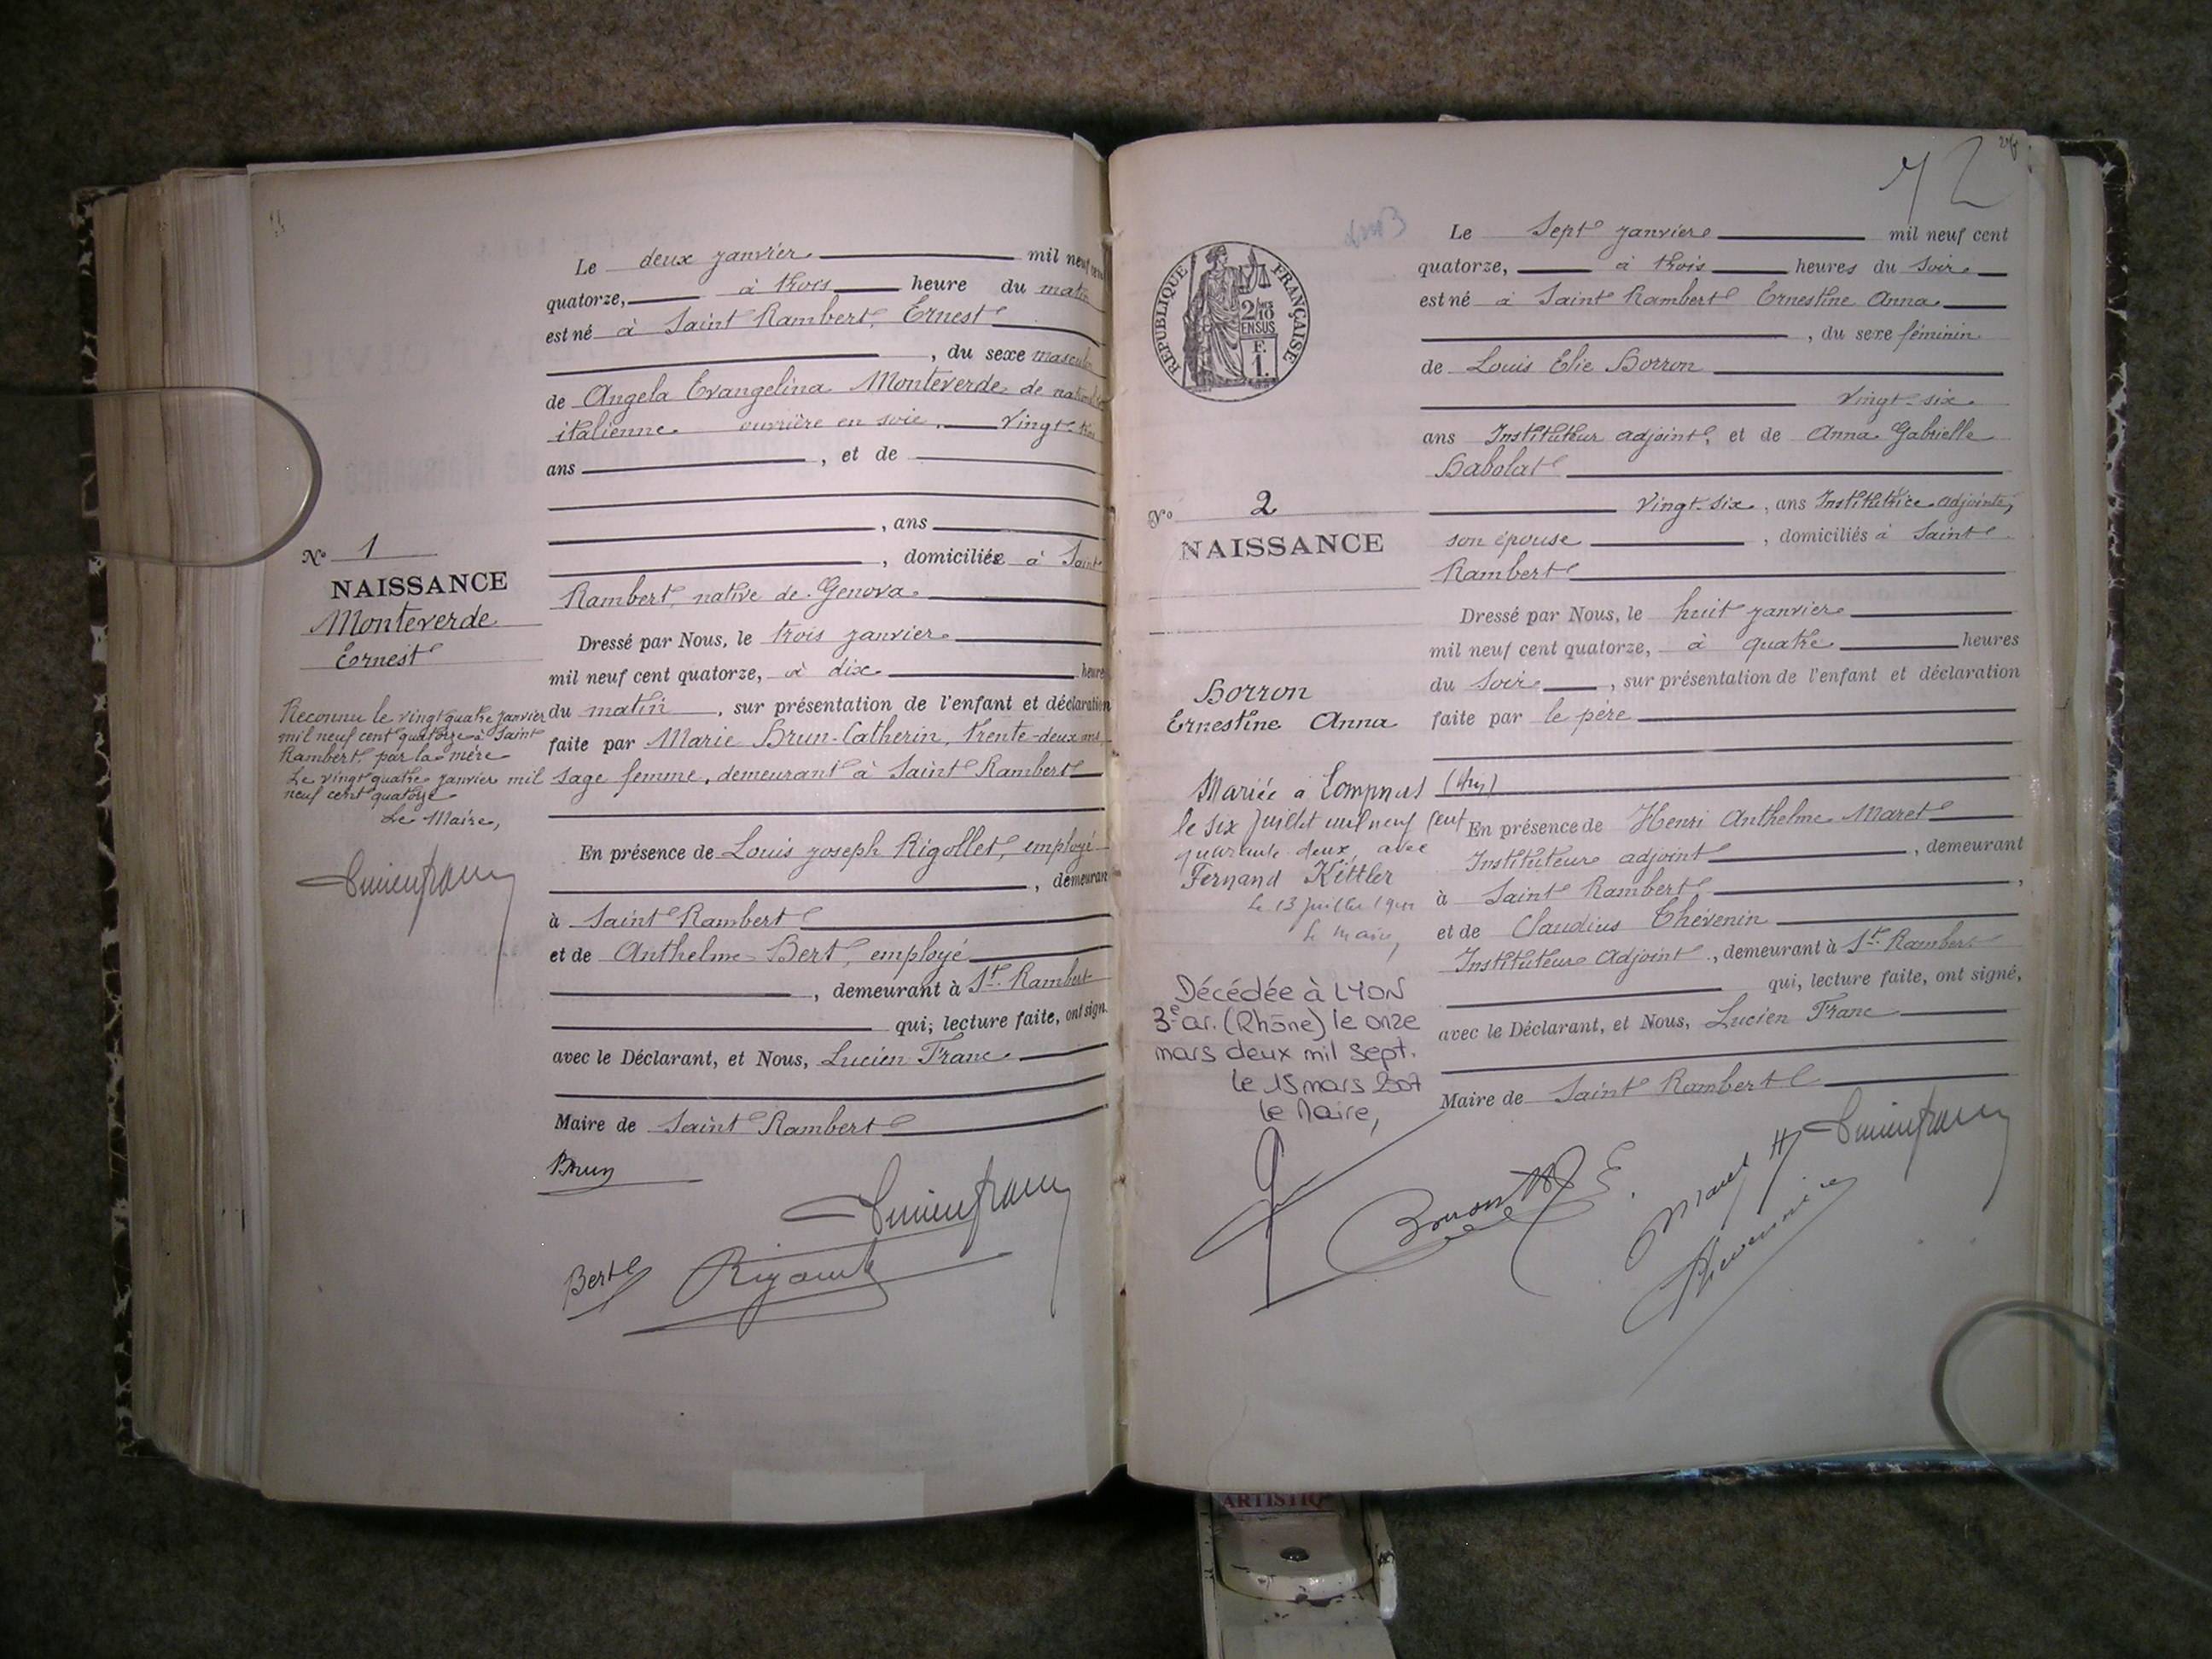 Le deux janvier mil neuf cent
quatorze, à trois heure du matin
est né à Saint Rambert, Ernest
, du sexe masculin
de Angela Evangelina Monteverde de
italienne ouvrière en soie, vingt-
ans , et de
, ans
, domiciliée à Saint
Rambert, native de Genova.
Dressé par Nous, le trois janvier
mil neuf cent quatorze, à dix heures
du matin , sur présentation de l'enfant et déclaration
faite par Marie Brun-Catherin, trente-deux ans,
sage femme, demeurant à Saint Rambert
En présence de Louis Joseph Rigollet, employé
, demeurant
à Saint Rambert
et de Anthelme Bert, employé
, demeurant à St. Rambert
qui, lecture faite, ont sign.
avec le Déclarant, et Nous, Lucien Franc
Maire de Saint Rambert
Brun
Lucien franc
Bert
No 1
NAISSANCE
Monteverde
Ernest
Reconnu le vingt quatre janvier
mil neuf cent quatorze à Saint
Rambert, par la mère
Le vingt quatre janvier mil
neuf cent quatorze
Le Maire,
Lucien franc
72
REPUBLIQUE FRANÇAISE
2/10
EN SUS
F.
1.
Le Sept janvier mil neuf cent
quatorze, à trois heures du soir
est né à Saint Rambert Ernestine Anna
, du sexe féminin
de Louis Elie Borron
vingt-six
ans Instituteur adjoint, et de Anna Gabrielle
Babolat
vingt-six , ans Institutrice adjointe,
son épouse , domiciliés à Saint
Rambert
Dressé par Nous, le huit janvier
mil neuf cent quatorze, à quatre heures
du soir , sur présentation de l'enfant et déclaration
faite par le père
En présence de Henri Anthelme Maret
Instituteur adjoint , demeurant
à Saint Rambert ,
et de Claudius Thévenin
Instituteur Adjoint , demeurant à St. Rambert
qui, lecture faite, ont signé,
avec le Déclarant, et Nous, Lucien Franc
Maire de Saint Rambert
No 2
NAISSANCE
Borron
Ernestine Anna
Mariée à Lompnas (Ain)
le six juillet mil neuf cent
quarante deux, avec
Fernand Kittler
le 13 juillet 1942
le maire,
Décédée à LYON
3e ar. (Rhône) le onze
mars deux mil sept.
le 15 mars 2007
le Maire,
Borron E.
Maret H
Lucien franc
Thévenin
ARTISTIQ